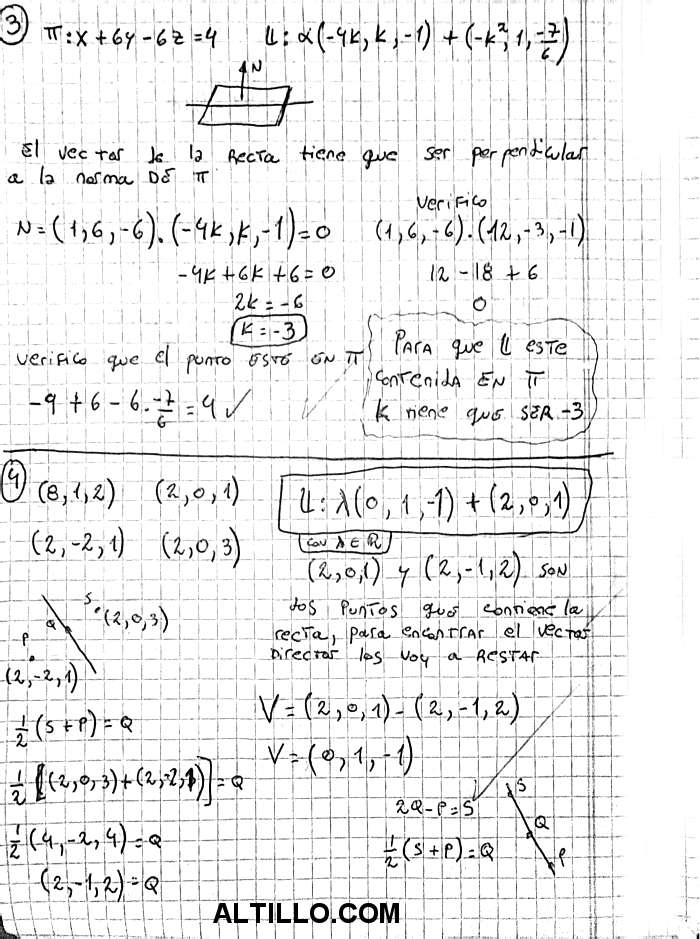 3
π: x + 6y - 6z = 4 L: α(-4k, k, -1) + (-k², 1, -7/6)
N
El vector de la Recta tiene que ser perpendicular
a la norma DE π
N = (1, 6, -6) . (-4k, k, -1) = 0
-4k + 6k + 6 = 0
2k = -6
k = -3
verifico
(1, 6, -6) . (12, -3, -1)
12 - 18 + 6
0
verifico que el punto ESTÉ EN π
-9 + 6 - 6 . -7/6 = 4 ✓
PARA que L ESTE
contenida EN π
k tiene que SER -3
4
(8, 1, 2) (2, 0, 1)
(2, -2, 1) (2, 0, 3)
S
(2, 0, 3)
Q
P
(2, -2, 1)
1/2 (S + P) = Q
1/2 [(2, 0, 3) + (2, -2, 1)] = Q
1/2 (4, -2, 4) = Q
(2, -1, 2) = Q
L: λ(0, 1, -1) + (2, 0, 1)
con λ ∈ ℝ
(2, 0, 1) y (2, -1, 2) SON
dos puntos que contiene la
recta, para encontrar el vector
Director los voy a RESTAR
V = (2, 0, 1) - (2, -1, 2)
V = (0, 1, -1)
2Q - P = S
1/2 (S + P) = Q
S
Q
P
ALTILLO.COM